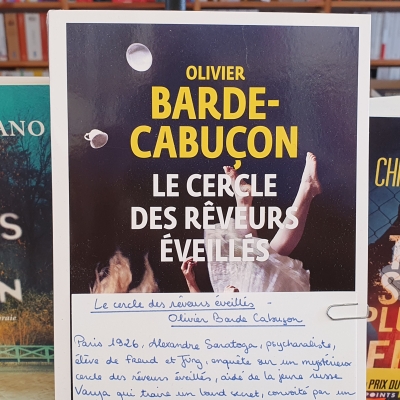 OLIVIER
BARDE-
CABUÇON
LE CERCLE
DES RÊVEURS
ÉVEILLÉS
Le cercle des rêveurs éveillés
Olivier Barde Cabuçon
Paris 1926, Alexandre Saratoga, psychanaliste,
élève de Freud et Jüng, enquête sur un mystérieux
cercle des rêveurs éveillés, aidé de la jeune russe
Vanya qui traîne un lourd secret, convoité par un
ANO
S
N
CH
T
S
PL
E
PRIX DU
POINTS